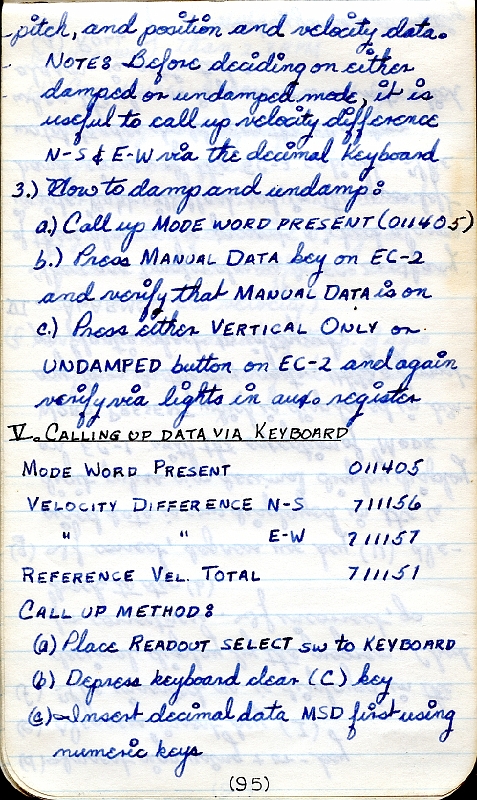 pitch, and position and velocity data.
NOTE: Before deciding on either
damped or undamped mode, it is
useful to call up velocity difference
N-S & E-W via the decimal keyboard
3.) How to damp and undamp:
a.) Call up MODE WORD PRESENT (011405)
b.) Press MANUAL DATA key on EC-2
and verify that MANUAL DATA is on
c.) Press either VERTICAL ONLY or
UNDAMPED button on EC-2 and again
verify via lights in aux. register
V. CALLING UP DATA VIA KEYBOARD
MODE WORD PRESENT 011405
VELOCITY DIFFERENCE N-S 711156
" " E-W 711157
REFERENCE VEL. TOTAL 711151
CALL UP METHOD:
(a) Place READOUT SELECT SW to KEYBOARD
(b) Depress keyboard clear (C) key
(c) Insert decimal data MSD first using
numeric keys
(95)